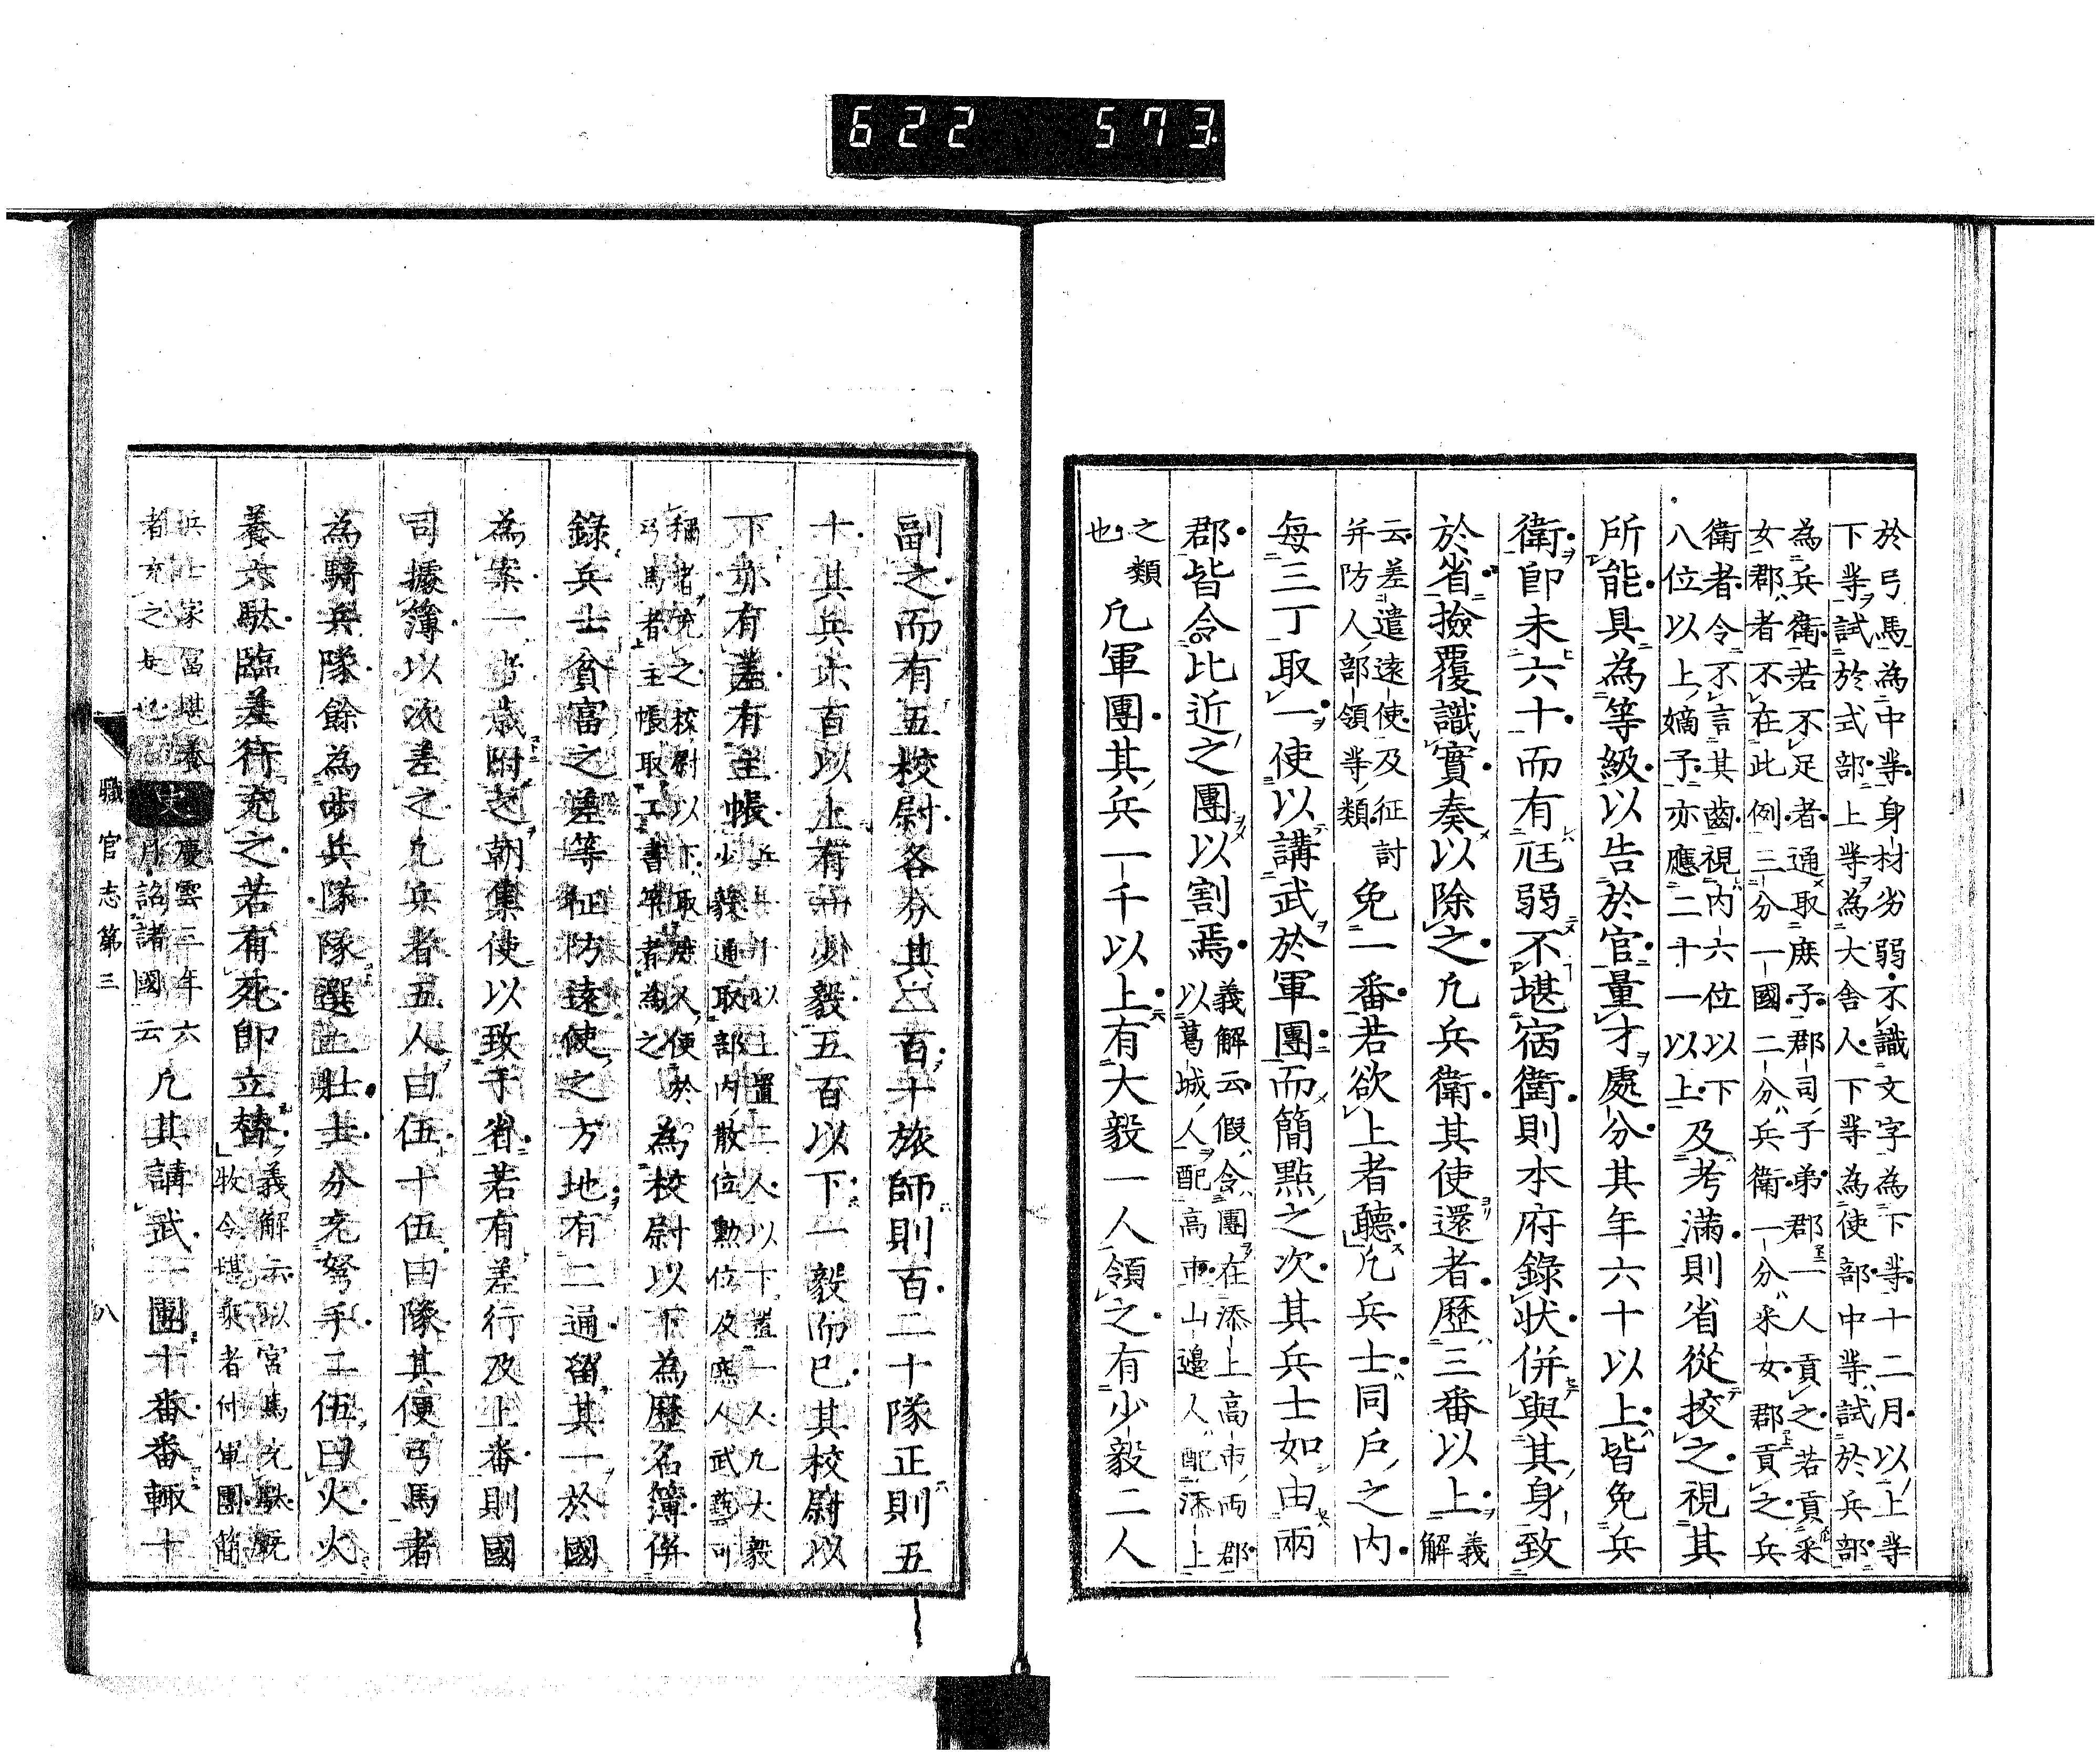 622 573
於弓馬為中等身材劣弱不識文字為下等十二月以上等
下等試於式部上等為大舍人下等為使部中等試於兵部
為兵衛若不足者通取庶子郡司子弟郡一人貢之若貢采
女郡者不在此例三分一國二分兵衛一分采女郡貢之兵
衛者令不言其齒視內六位以下
八位以上嫡子亦應二十一以上
及考滿則省從挍之視其
所能具為等級以告於官量才處分其年六十以上皆免兵
衛即未六十而有尫弱不堪宿衛則本府錄狀併與其身致
於省撿覆識實奏以除之凡兵衛其使還者歷三番以上義
解
云差遣遠使及征討
并防人部領等類
免一番若欲上者聽凡兵士同戶之內
每三丁取一使以講武於軍團而簡點之次其兵士如由兩
郡皆令比近之團以割焉
義解云假令團在添上高市兩郡
以葛城人配高市山邊人配添上
之類
也
凡軍團其兵一千以上有大毅一人領之有少毅二人
副之而有五校尉各分其二百十旅師則百二十隊正則五
十其兵六百以上有一少毅五百以下一毅而已其校尉以
下亦有差有主帳
兵士千以上置二人以下置一人凡大毅
少毅通取部內散位勳位及庶人武藝可
稱者充之校尉以下取庶人便於
弓馬者主帳取工書筭者為之
為校尉以下為歷名簿併
錄兵士貧富之差等征防遠使之方地有二通留其一於國
為案一以歲附之朝集使以致于省若有差行及上番則國
司據簿以次差之凡兵者五人曰伍十伍曰隊其便弓馬者
為騎兵隊餘為步兵隊隊選二壯士分充弩手二伍曰火火
養六駄臨差行充之若有死即立替
義解云以官馬充駄既
牧令堪乘者付軍團簡
兵士家富堪養
者充之是也
史
慶雲三年六
月詔諸國云
凡其講武一團十番番輙十
職官志第三
八